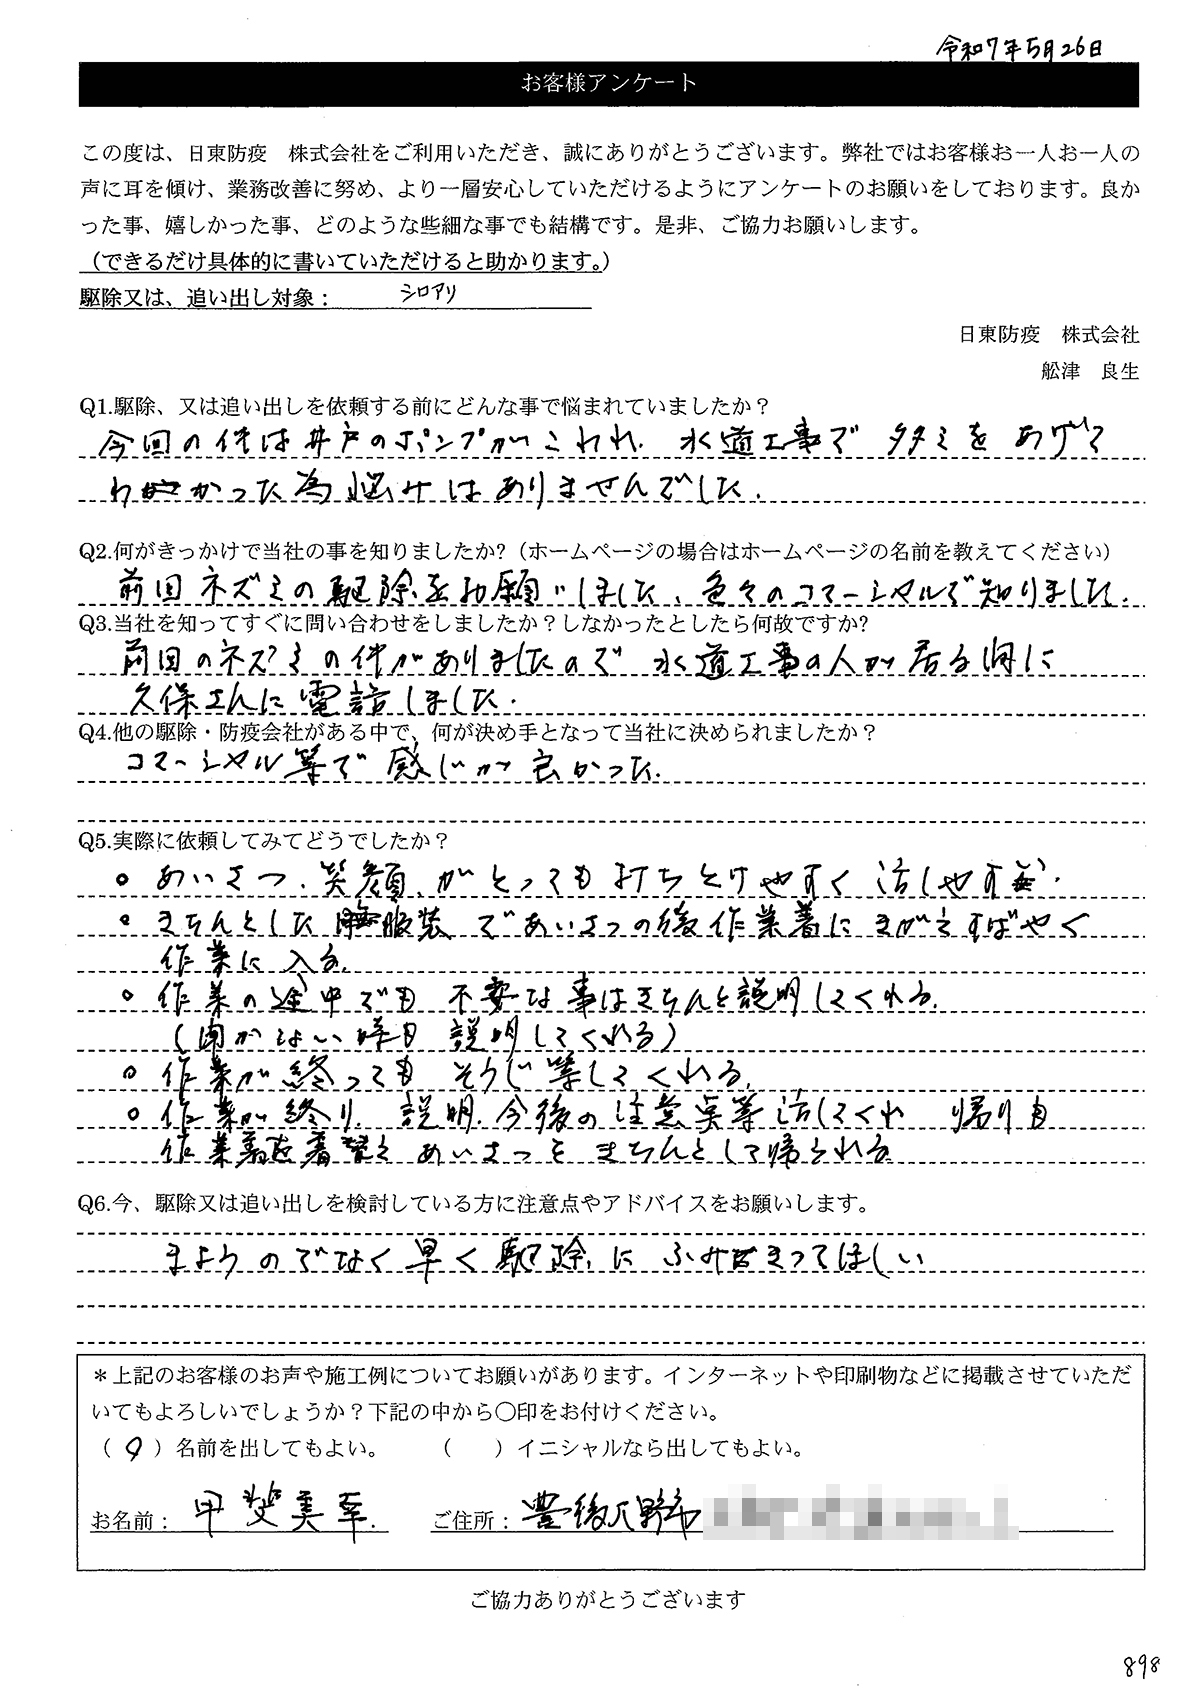 令和7年5月26日
お客様アンケート
この度は、日東防疫　株式会社をご利用いただき、誠にありがとうございます。弊社ではお客様お一人お一人の
声に耳を傾け、業務改善に努め、より一層安心していただけるようにアンケートのお願いをしております。良か
った事、嬉しかった事、どのような些細な事でも結構です。是非、ご協力お願いします。
（できるだけ具体的に書いていただけると助かります。）
駆除又は、追い出し対象：シロアリ
日東防疫　株式会社
舩津　良生
Q1.駆除、又は追い出しを依頼する前にどんな事で悩まれていましたか？
今回の件は井戸のポンプがこわれ、水道工事でタタミをあげて
わかった為悩みはありませんでした。
Q2.何がきっかけで当社の事を知りましたか?（ホームページの場合はホームページの名前を教えてください）
前回ネズミの駆除をお願いしました、色々のコマーシャルで知りました。
Q3.当社を知ってすぐに問い合わせをしましたか？しなかったとしたら何故ですか?
前回のネズミの件がありましたので水道工事の人が居る間に
久保さんに電話しました。
Q4.他の駆除・防疫会社がある中で、何が決め手となって当社に決められましたか？
コマーシャル等で感じが良かった。
Q5.実際に依頼してみてどうでしたか？
○あいさつ、笑顔、がとっても打ちとけやすく話しやすい。
○きちんとした服装であいさつの後作業着にきがえすばやく
作業に入る。
○作業の途中でも不安な事はきちんと説明してくれる。
（聞かない時も説明してくれる）
○作業が終ってもそうじ等してくれる。
○作業が終り、説明、今後の注意点等話してくれ帰りも
作業着を着替えあいさつをきちんとして帰られる
Q6.今、駆除又は追い出しを検討している方に注意点やアドバイスをお願いします。
まようのでなく早く駆除にふみきってほしい
＊上記のお客様のお声や施工例についてお願いがあります。インターネットや印刷物などに掲載させていただ
いてもよろしいでしょうか？下記の中から〇印をお付けください。
（○）名前を出してもよい。　（　）イニシャルなら出してもよい。
お名前：甲斐美幸　ご住所：豊後大野市
ご協力ありがとうございます
898